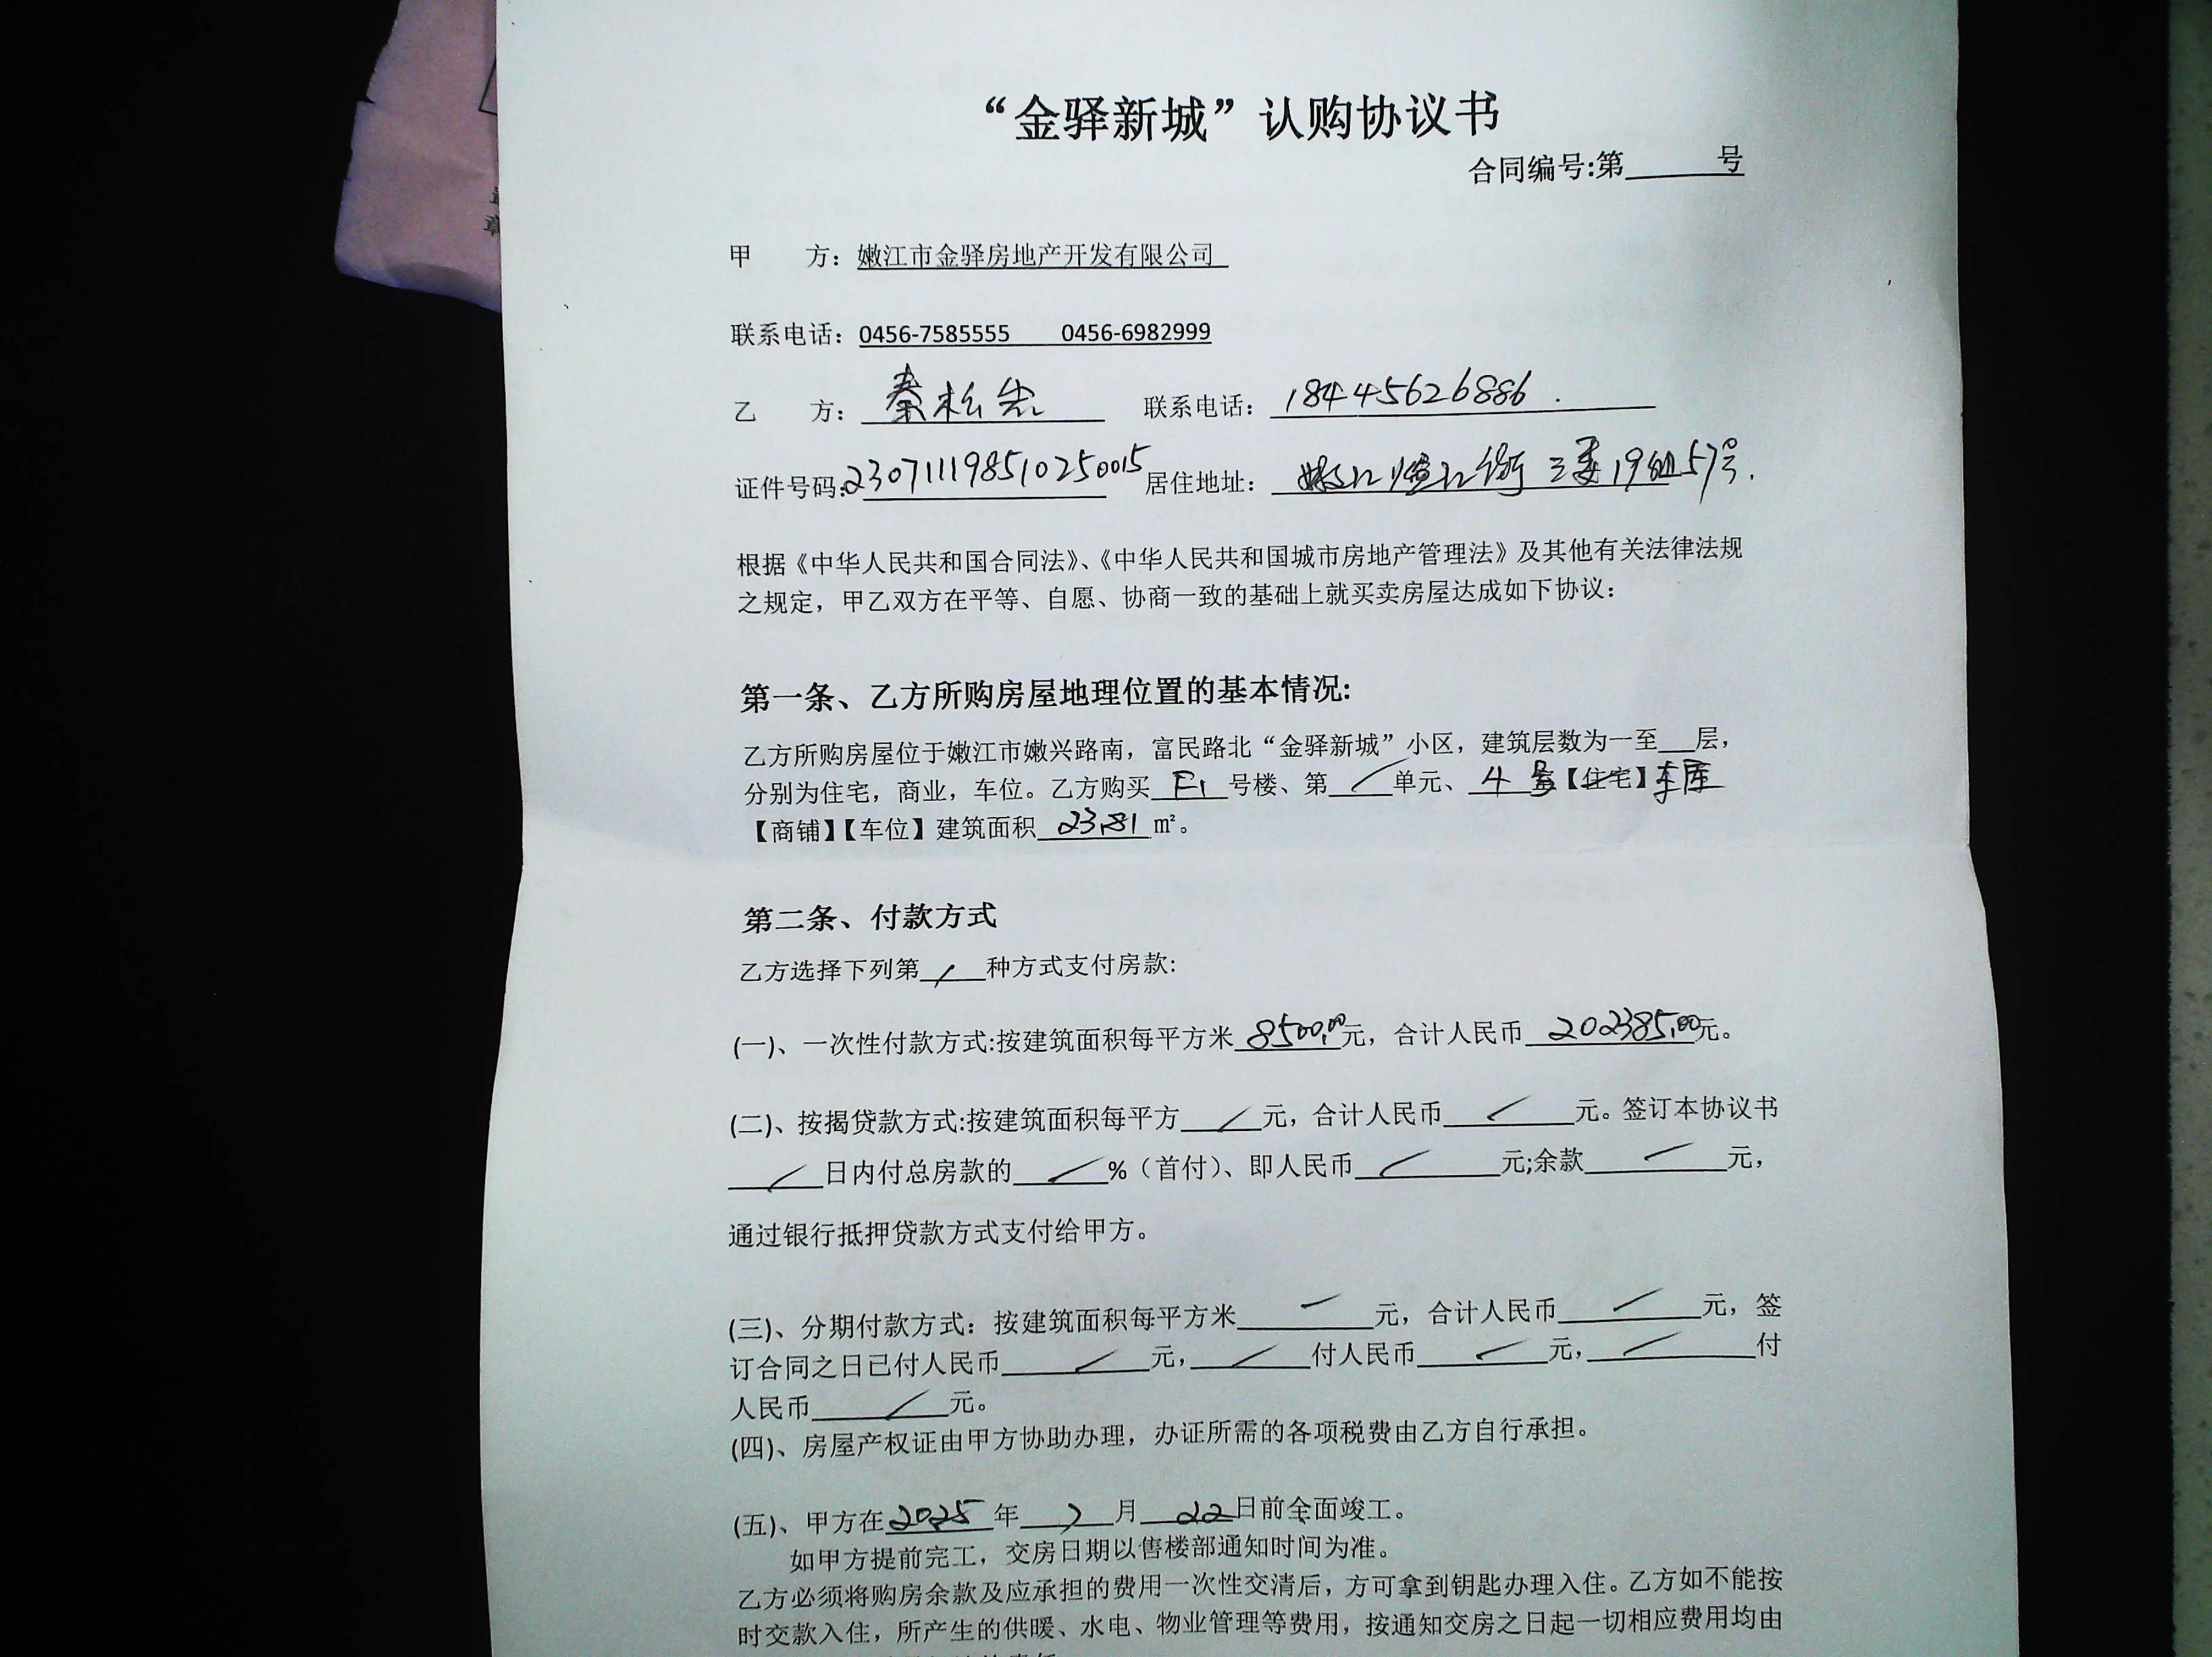 “金驿新城”认购协议书
合同编号:第______号
甲　　方：嫩江市金驿房地产开发有限公司
联系电话：0456-7585555　　0456-6982999
乙　　方：秦松岩　联系电话：18445626886.
证件号码:230711198510250015 居住地址：嫩江 江街三委19组57号.
根据《中华人民共和国合同法》、《中华人民共和国城市房地产管理法》及其他有关法律法规
之规定，甲乙双方在平等、自愿、协商一致的基础上就买卖房屋达成如下协议：
第一条、乙方所购房屋地理位置的基本情况:
乙方所购房屋位于嫩江市嫩兴路南，富民路北“金驿新城”小区，建筑层数为一至___层，
分别为住宅，商业，车位。乙方购买 F1 号楼、第 / 单元、 4 号【住宅】车库
【商铺】【车位】建筑面积 23.81 m²。
第二条、付款方式
乙方选择下列第 / 种方式支付房款:
(一)、一次性付款方式:按建筑面积每平方米 8500.00元，合计人民币 202385.00元。
(二)、按揭贷款方式:按建筑面积每平方 / 元，合计人民币 / 元。签订本协议书
/ 日内付总房款的 / %（首付）、即人民币 / 元;余款 / 元，
通过银行抵押贷款方式支付给甲方。
(三)、分期付款方式：按建筑面积每平方米 / 元，合计人民币 / 元，签
订合同之日已付人民币 / 元， / 付人民币 / 元， / 付
人民币 / 元。
(四)、房屋产权证由甲方协助办理，办证所需的各项税费由乙方自行承担。
(五)、甲方在2025 年 7 月 22日前全面竣工。
如甲方提前完工，交房日期以售楼部通知时间为准。
乙方必须将购房余款及应承担的费用一次性交清后，方可拿到钥匙办理入住。乙方如不能按
时交款入住，所产生的供暖、水电、物业管理等费用，按通知交房之日起一切相应费用均由
章